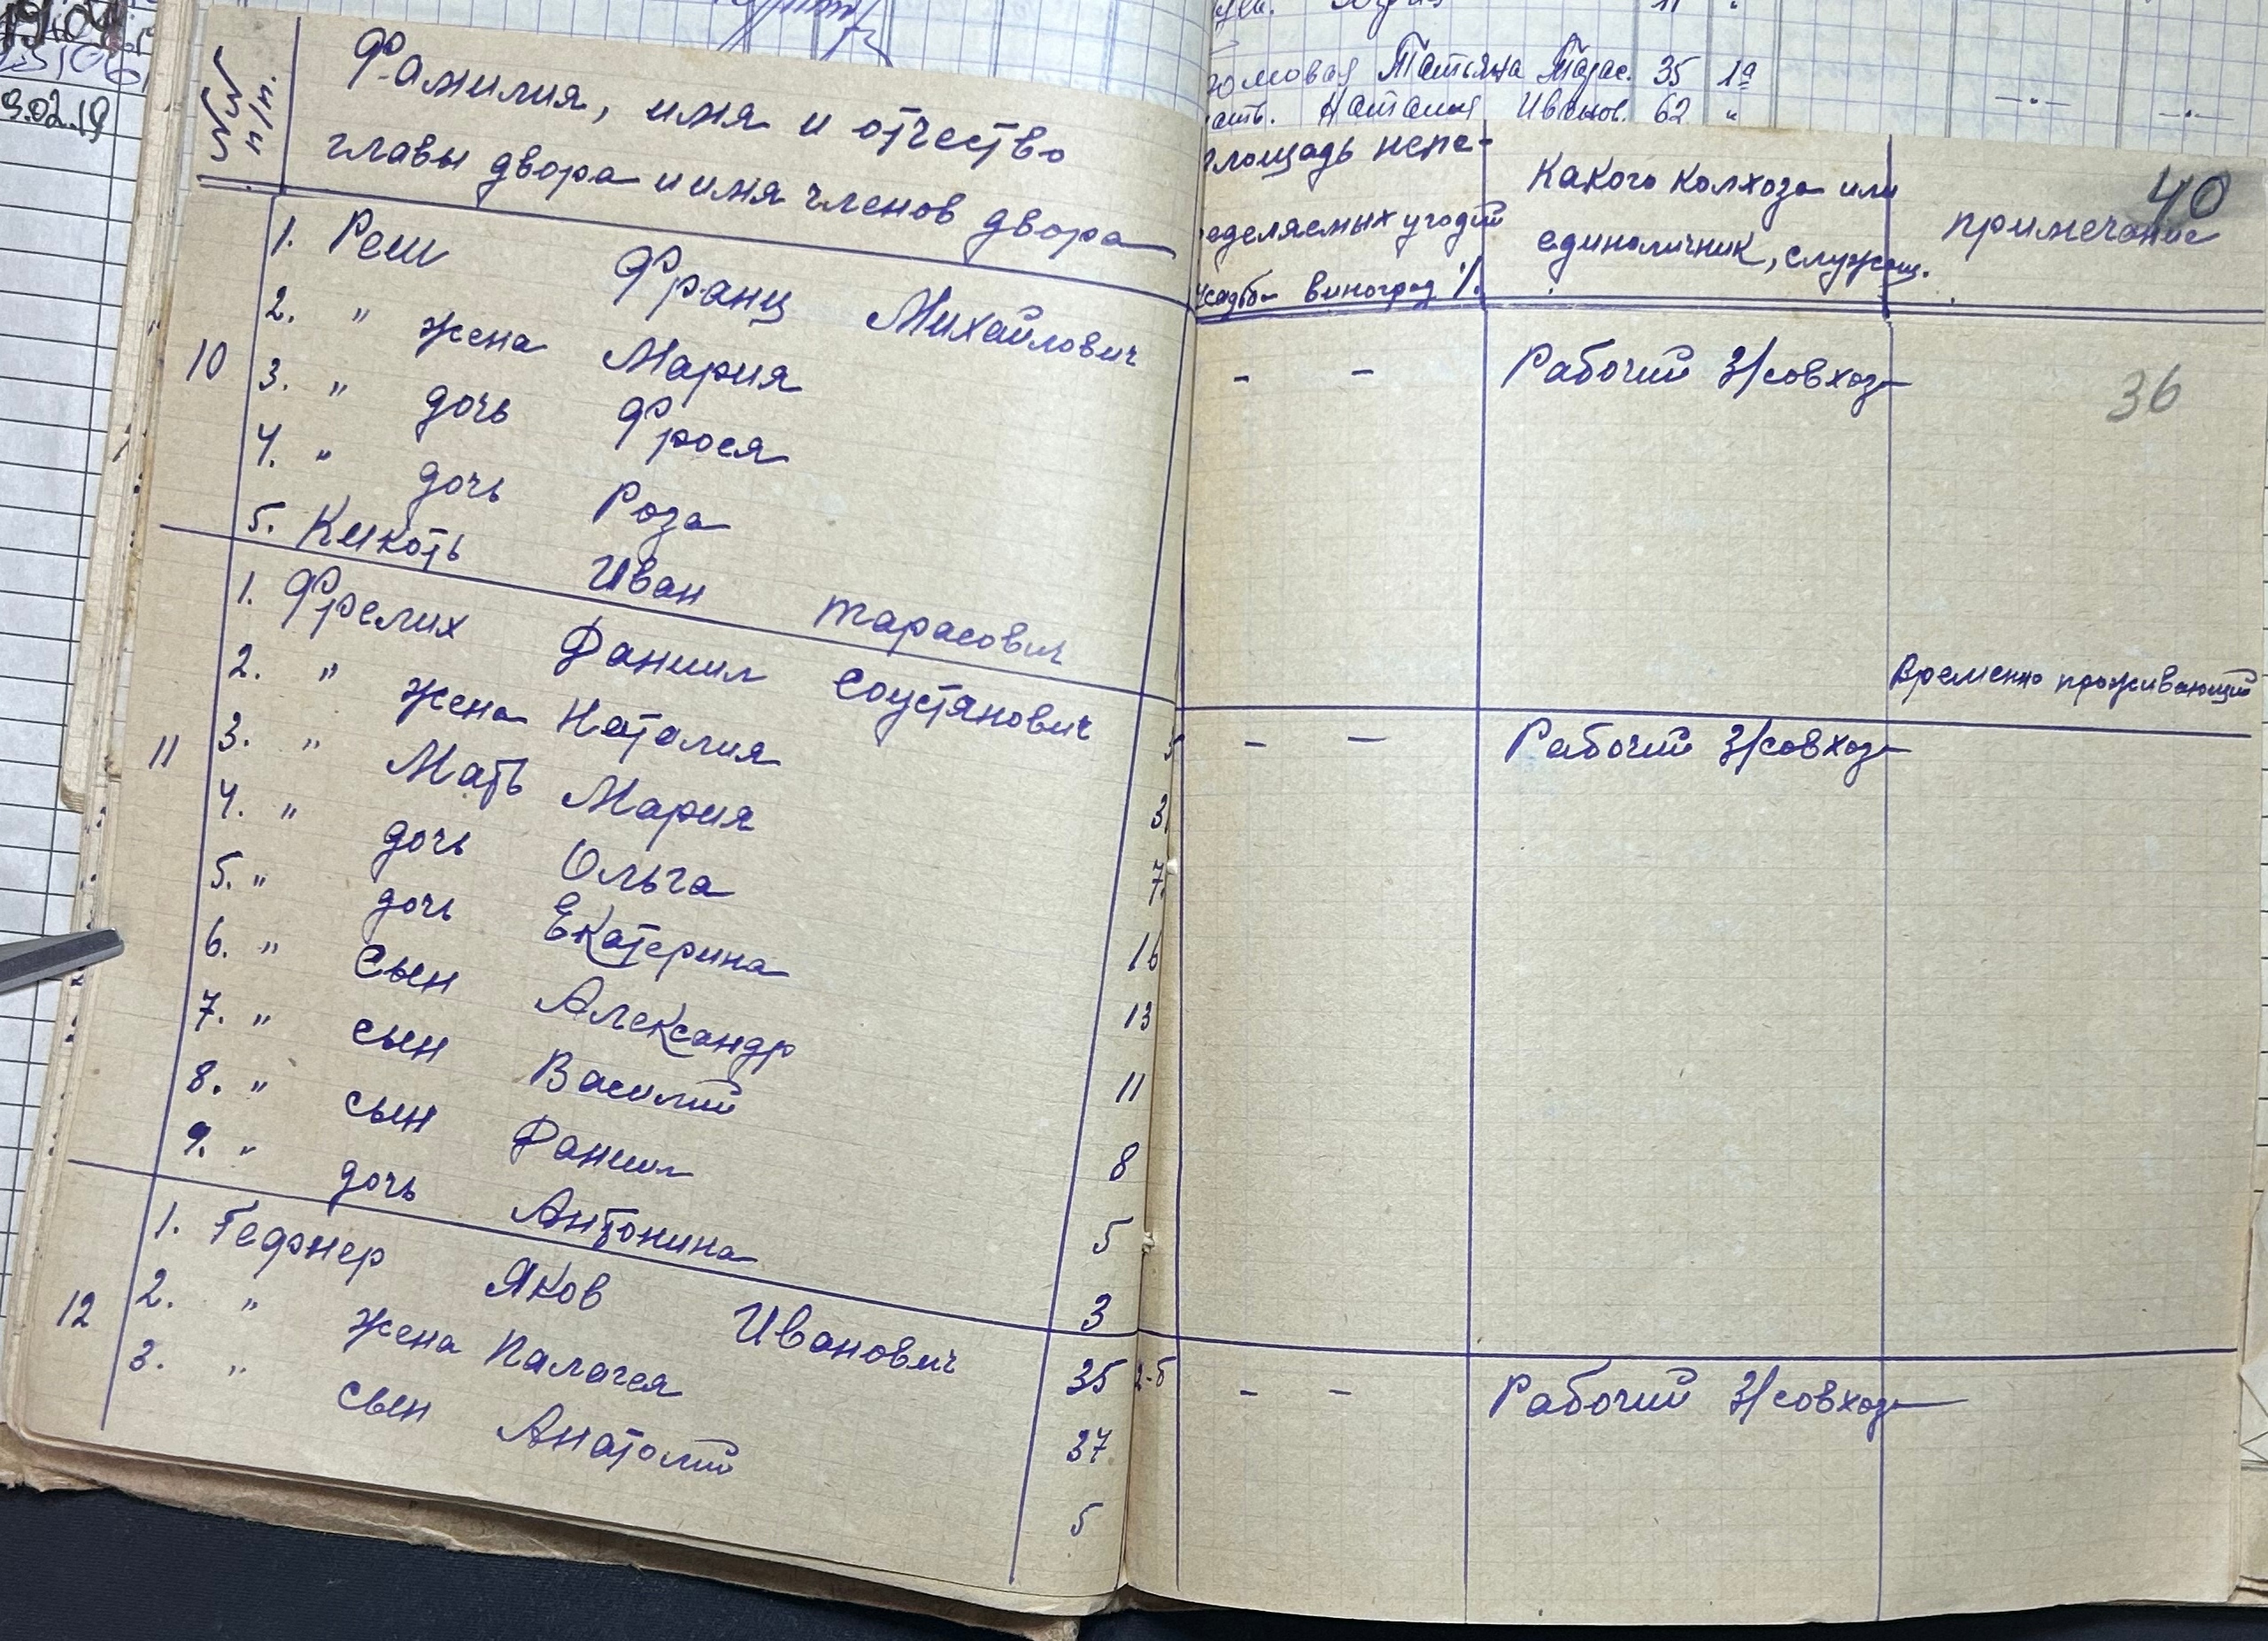 19.04.19
9.02.19
№№ п/п.
Фамилия, имя и отчество
главы двора и имя членов двора
10
1. Реш Франц Михайлович
2. " жена Мария
3. " дочь Фрося
4. " дочь Роза
5. Кикоть Иван Тарасович
11
1. Фрелих Даниил Соустянович
2. " жена Наталия
3. " Мать Мария 3
4. " дочь Ольга 7
5. " дочь Екатерина 16
6. " сын Александр 13
7. " сын Василий 11
8. " сын Даниил 8
9. " дочь Антонина 5
3
12
1. Гефнер Яков Иванович 35 2-б
2. " жена Палагея 37
3. " сын Анатолий 5
11 "
Татьяна Тарас. 35 1а
Наталия Иванов. 62 "
площадь непе-
ределяемых угодий
усадьба виноград %
какого колхоза или
единоличник, служащ.
примечание
40
- - Рабочий З/совхоза
36
Временно проживающий
- - Рабочий З/совхоза
- - Рабочий З/совхоза